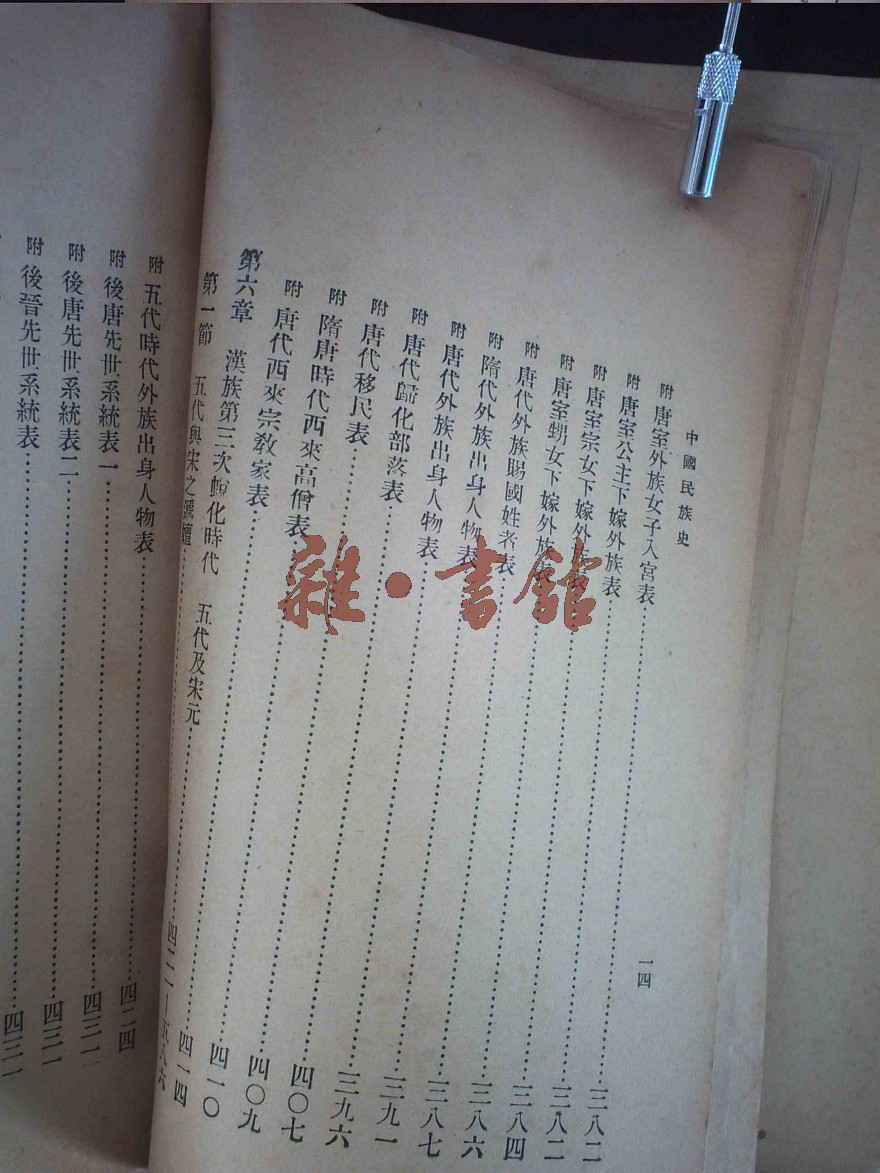 中國民族史
一四
附 唐室外族女子入宮表…三八二
附 唐室公主下嫁外族表…三八二
附 唐室宗女下嫁外族表…三八四
附 唐室甥女下嫁外族表…三八六
附 唐代外族賜國姓者表…三八七
附 隋代外族出身人物表…三九一
附 唐代外族出身人物表…三九六
附 唐代歸化部落表…四〇七
附 唐代移民表…四〇九
附 隋唐時代西來高僧表…四一〇
附 唐代西來宗教家表…四一四
第六章 漢族第三次蛻化時代 五代及宋元…五八六
第一節 五代與宋之遞嬗
附 五代時代外族出身人物表…四二四
附 後唐先世系統表一…四三一
附 後唐先世系統表二…四三一
附 後晉先世系統表
雜·書館